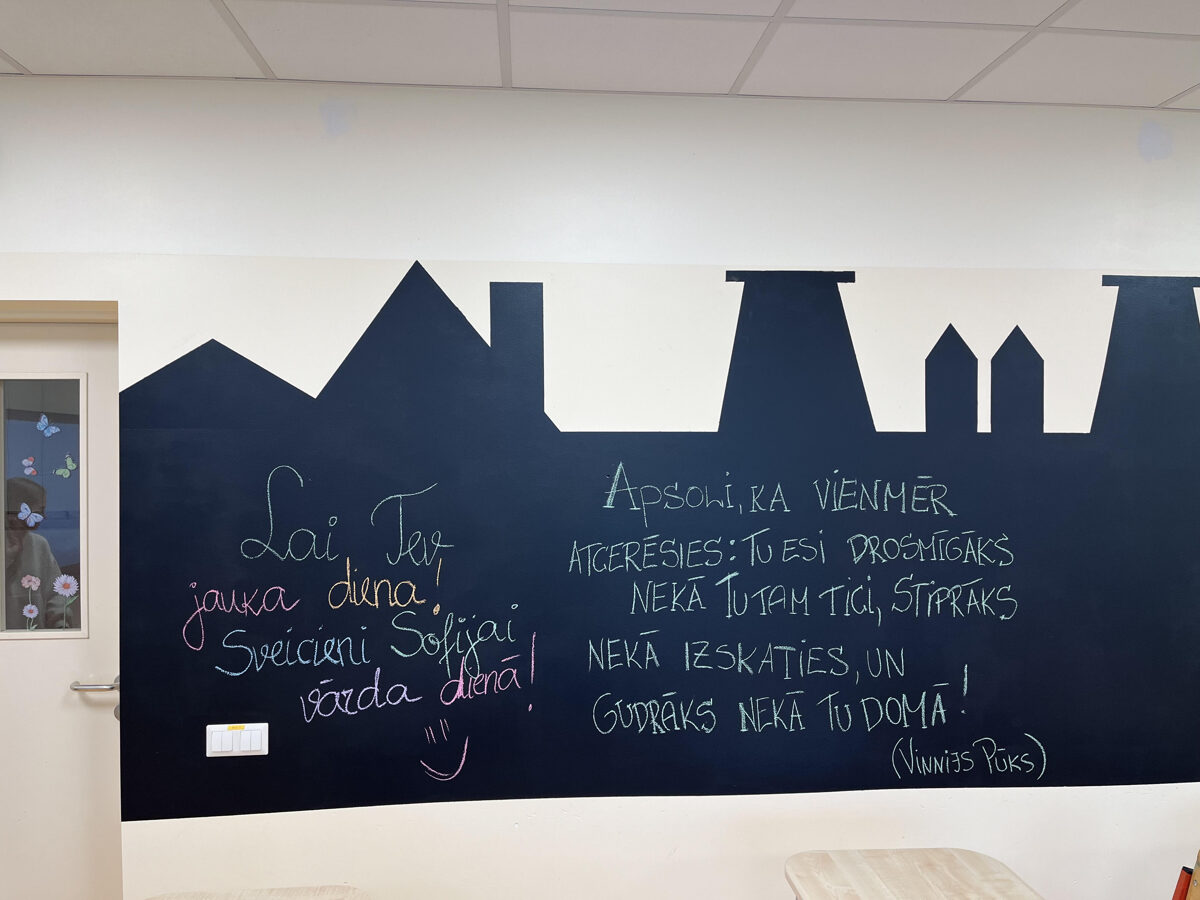 Lai Tev
jauka diena!
Sveicieni Sofijai
vārda dienā!
APSOLI, KA VIENMĒR
ATCERĒSIES: TU ESI DROSMĪGĀKS
NEKĀ TU TAM TICI, STIPRĀKS
NEKĀ IZSKATIES, UN
GUDRĀKS NEKĀ TU DOMĀ!
(VINNIJS PŪKS)